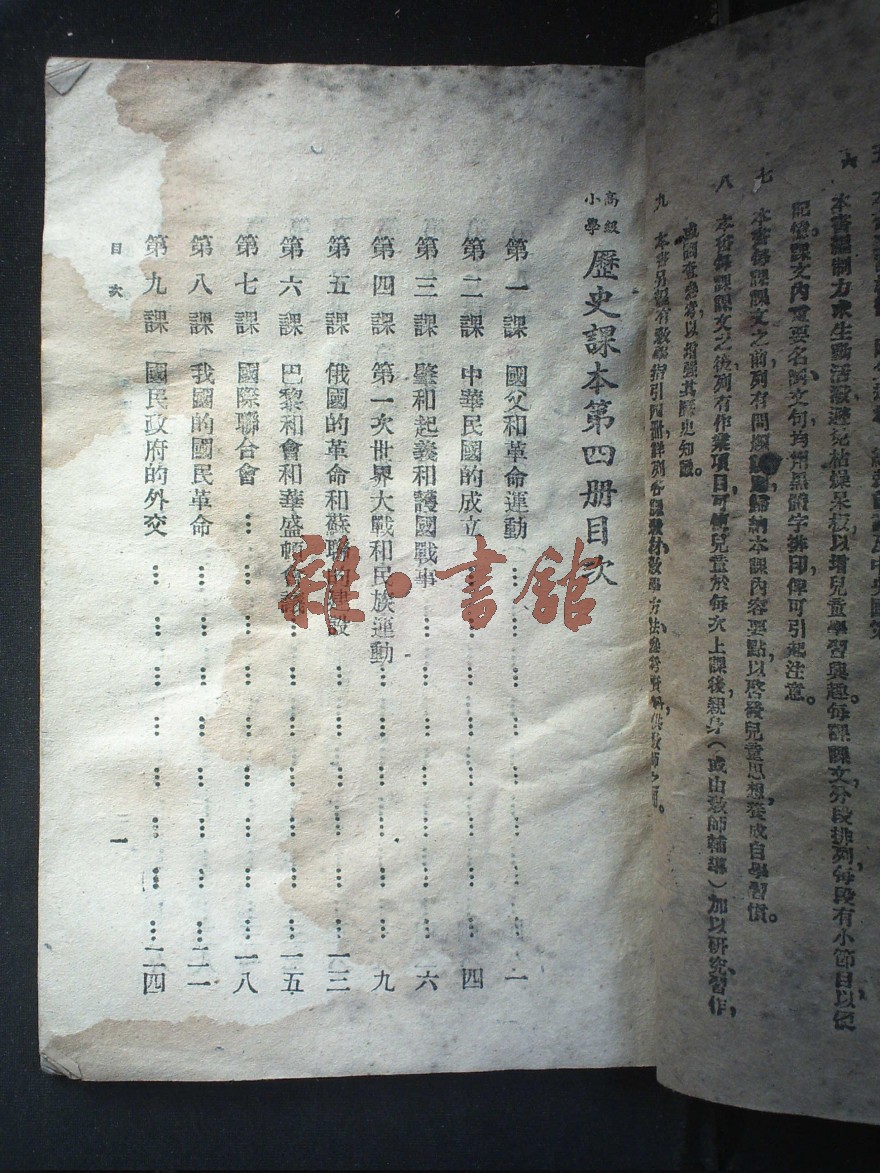 六 本書編制力求生動活潑避免枯燥呆板以增兒童學習興趣每課課文分段排列每段有小節目以便
記憶課文內重要名詞文句均用黑體字排印俾可引起注意。
七 本書每課課文之前列有問題以歸納本課內容要點以啓發兒童思想養成自學習慣。
八 本書每課課文之後列有作業項目可使兒童於每次上課後親身(或由教師輔導)加以研究習作,
或調查參考以增強其歷史知識。
九 本書另編有教學指引四冊詳列各課教材教學方法參考資料供教師之用。
高級
小學
歷史課本第四册目次
第一課 國父和革命運動 一
第二課 中華民國的成立 四
第三課 肇和起義和護國戰事 六
第四課 第一次世界大戰和民族運動 九
第五課 俄國的革命和蘇聯的建設 一三
第六課 巴黎和會和華盛頓會議 一五
第七課 國際聯合會 一八
第八課 我國的國民革命 二一
第九課 國民政府的外交 二四
目次
一
雜·書館